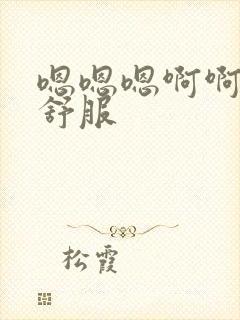 嗯嗯嗯啊啊
舒服
松霞